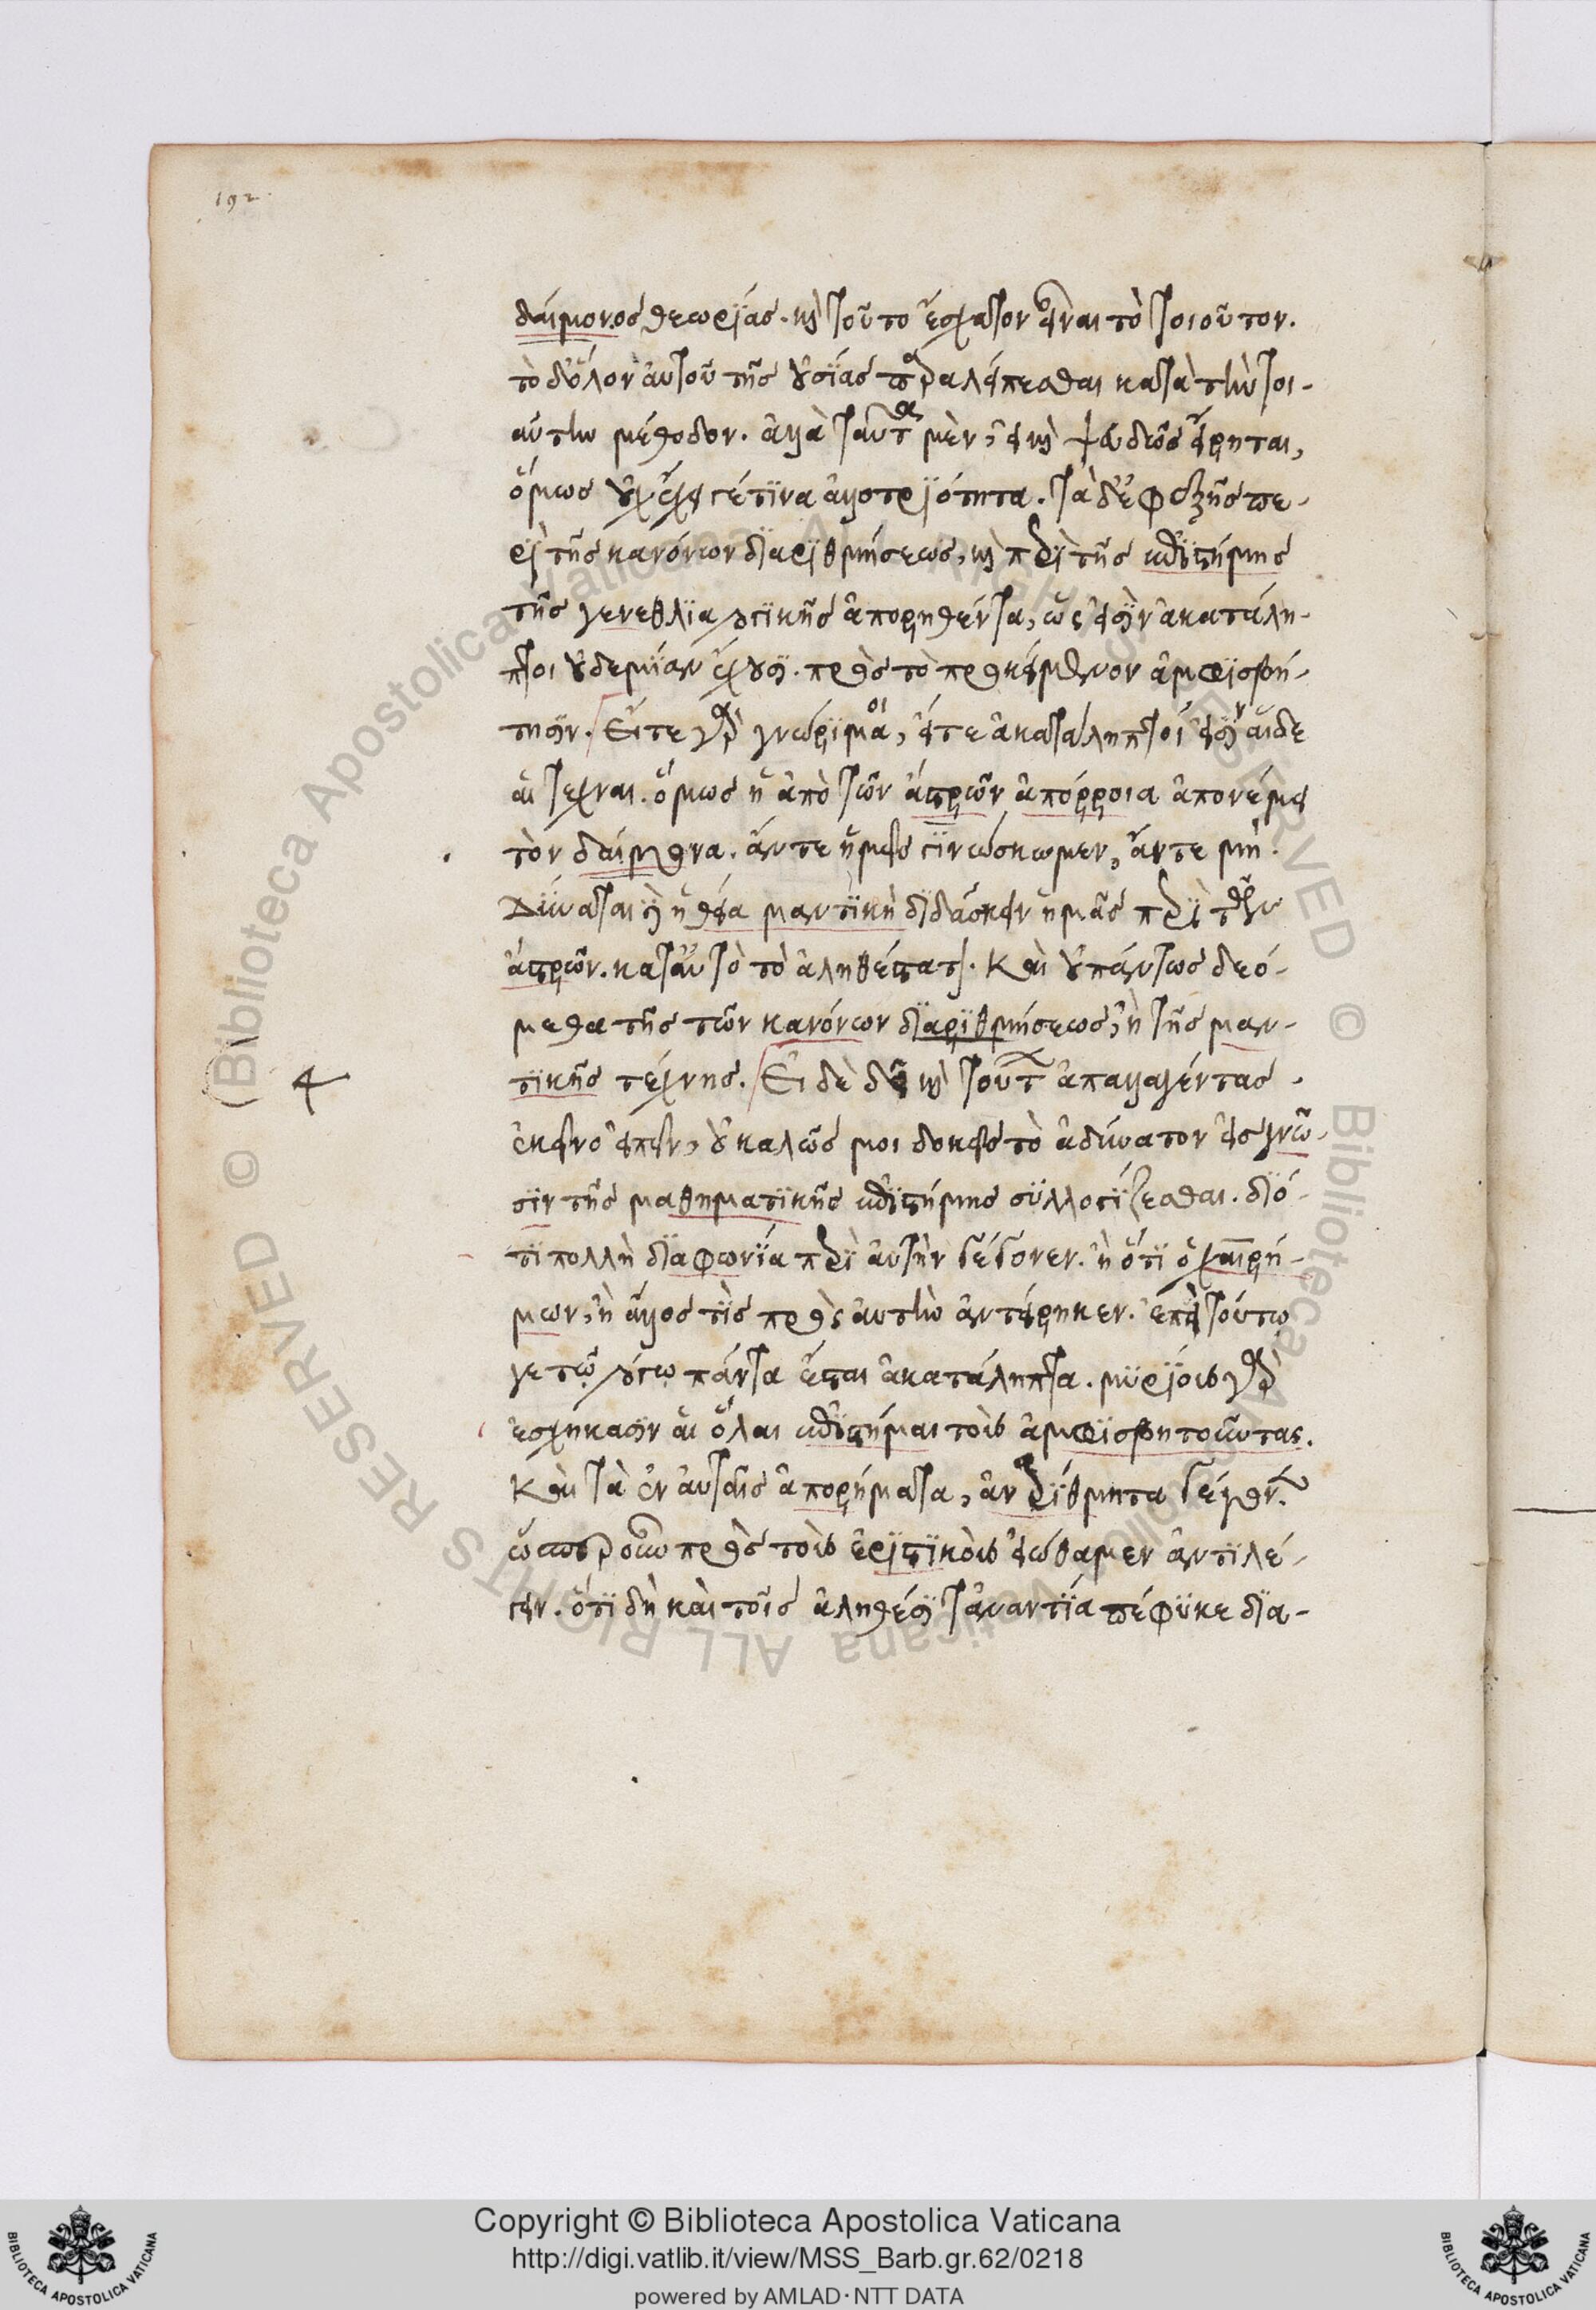 192
δαίμονος θεωρίας. καὶ τοῦτο ἔσχατον εἶναι τὸ τοιοῦτον.
τὸ δ' ὅλον αὐτοῦ τῆς οὐσίας παραλείπεσθαι κατὰ τὴν τοι-
αύτην μέθοδον. ἀλλὰ ταῦτα μὲν, εἰ καὶ ψευδῶς εἴρηται,
ὅμως οὐκ ἔχει γέ τινα ἀλλοτριότητα. τὰ δ' ἐφεξῆς πε-
ρὶ τῆς κανόνων διαριθμήσεως, καὶ περὶ τῆς ἐπιστήμης
τῆς γενεθλιαλογικῆς ἀπορηθέντα, ὥς εἰσιν ἀκατάλη-
πτοι οὐδεμίαν ἔχουσι. πρὸς τὸ προκείμενον ἀμφισβή-
τησιν. Εἴτε γὰρ γνώριμοι, εἴτε ἀκατάληπτοί εἰσιν αἵδε
αἱ τέχναι. ὅμως ἡ ἀπὸ τῶν ἄστρων ἀπόρροια ἀπονέμει
τὸν δαίμονα. ἄντε ἡμεῖς γινώσκωμεν, ἄντε μή.
Δύναται δὲ ἡ θεία μαντικὴ διδάσκειν ἡμᾶς περὶ τῶν
ἄστρων. κατ' αὐτὸ τὸ ἀληθέστατον. Καὶ οὐ πάντως δεό-
μεθα τῆς τῶν κανόνων διαριθμήσεως, ἢ τῆς μαν-
τικῆς τέχνης. Εἰ δὲ δεῖ καὶ τούτων ἀπαλλαγέντας
ἐκεῖνο εἰπεῖν, οὐ καλῶς μοι δοκεῖς τὸ ἀδύνατον εἰς γνῶ-
σιν τῆς μαθηματικῆς ἐπιστήμης συλλογίζεσθαι. διό-
τι πολλὴ διαφωνία περὶ αὐτὴν γέγονεν. ἢ ὅτι ὁ χαιρή-
μων, ἢ ἄλλος τὶς πρὸς αὐτὴν ἀντείρηκεν. ἐπεὶ τούτῳ
γε τῷ λόγῳ πάντα ἔσται ἀκατάληπτα. μυρίους γὰρ
ἐσχήκασιν αἱ ὅλαι ἐπιστήμαι τοὺς ἀμφισβητοῦντας.
Καὶ τὰ ἐν αὐταῖς ἀπορήματα, ἀναρίθμητα γέγονεν.
ὥσπερ οὖν πρὸς τοὺς ἐριστικοὺς εἰώθαμεν ἀντιλέ-
γειν. ὅτι δὴ καὶ τοῖς ἀληθέσι τἀναντία πέφυκε δια-
Copyright © Biblioteca Apostolica Vaticana
http://digi.vatlib.it/view/MSS_Barb.gr.62/0218
powered by AMLAD·NTT DATA